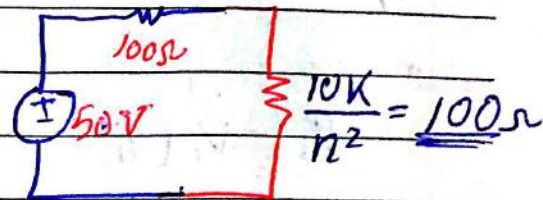 100Ω
50V
10K/n² = 100Ω